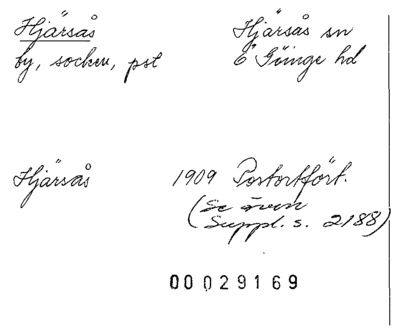 Hjärsås Hjärsås sn
by, socken, pst Ö Göinge hd
Hjärsås 1909 Postortfört.
(Se även
Suppl. s. 2188)
00029169